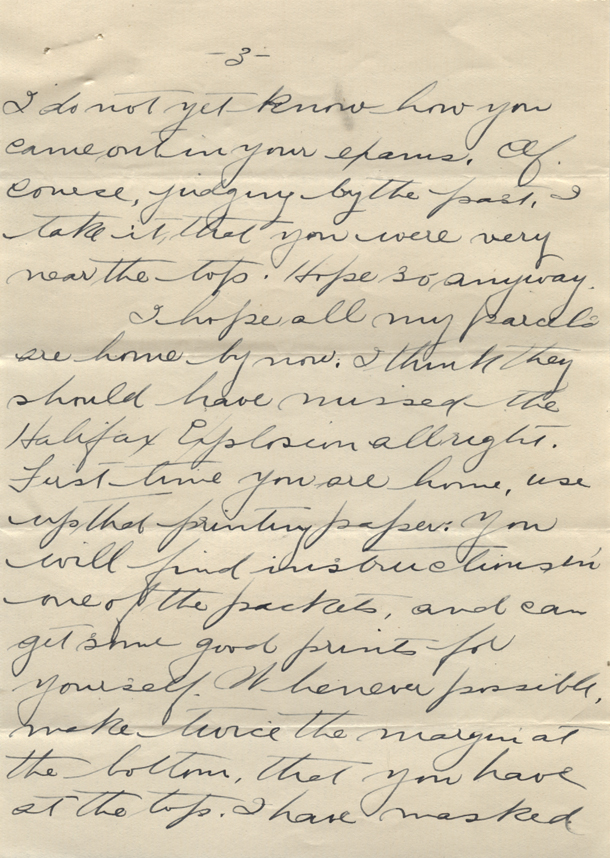 -3-
I do not yet know how you
came out in your exams. Of
course, judging by the past, I
take it, that you were very
near the top. Hope so anyway.
I hope all my parcels
are home by now. I think they
should have missed the
Halifax Explosion allright.
First time you are home, use
up that printing paper. You
will find instructions in
one of the packets, and can
get some good prints for
yourself. Whenever possible,
make twice the margin at
the bottom, that you have
at the top. I have masked